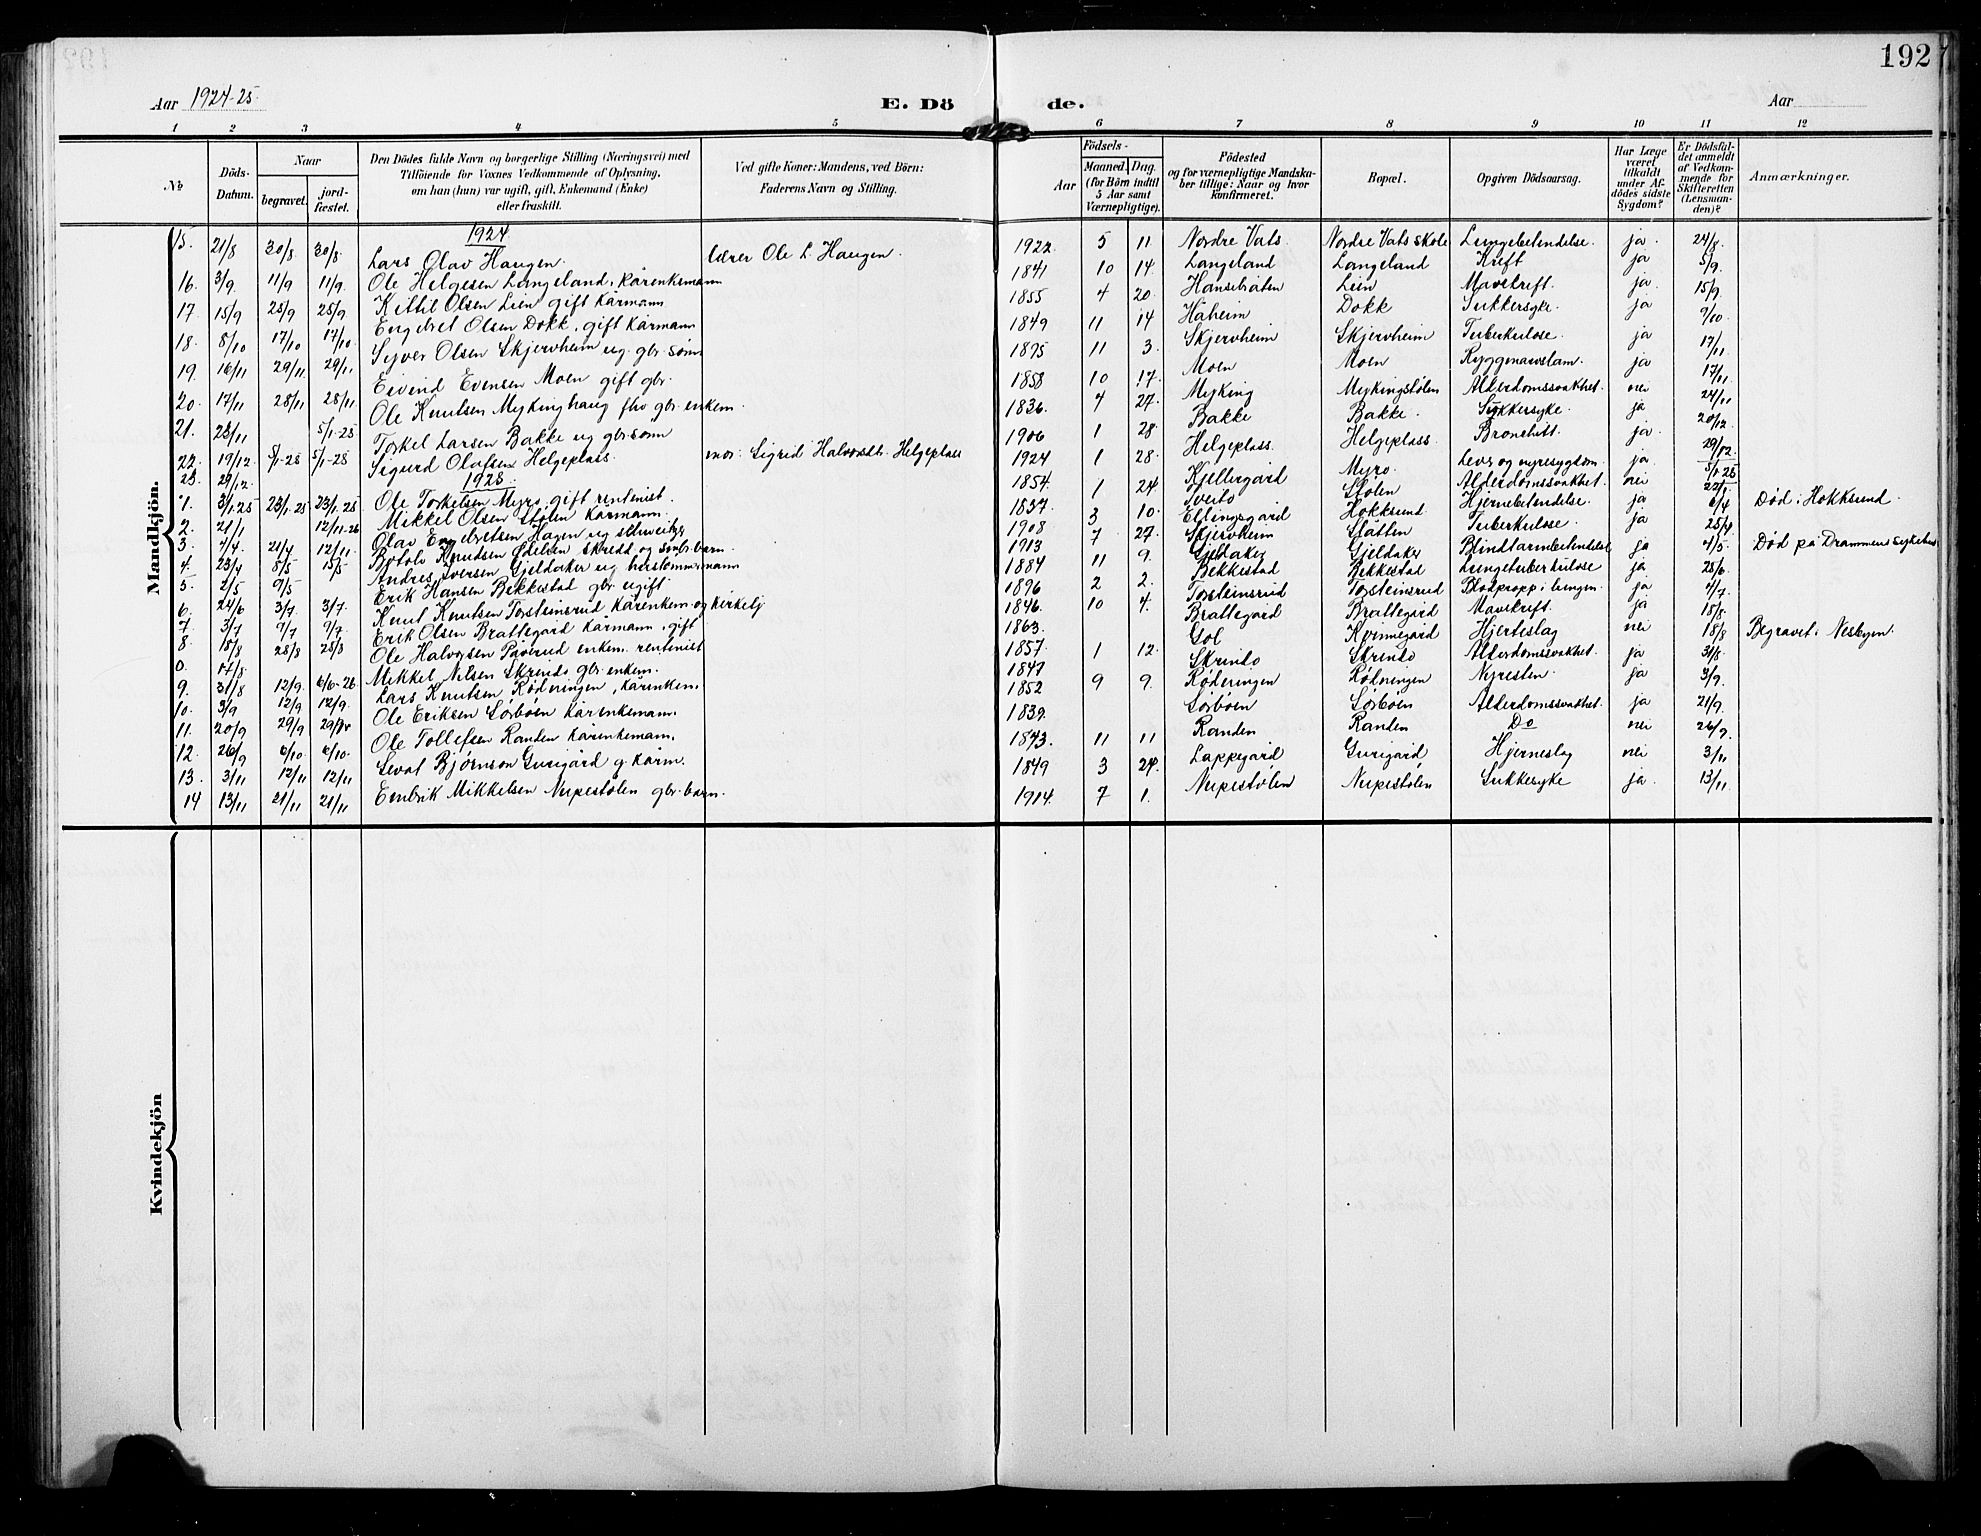 192
Aar 1924-25
E. Döde.
Aar
1 2 3 4 5 6 7 8 9 10 11 12
No
Döds-Datum.
Naar
begravet.
jord-fæstet.
Den Dödes fulde Navn og borgerlige Stilling (Næringsvei) med
Tilföiende for Voxnes Vedkommende af Oplysning,
om han (hun) var ugift, gift, Enkemand (Enke)
eller fraskilt.
Ved gifte Koner: Mandens, ved Börn:
Faderens Navn og Stilling.
Födsels-
Aar
Maaned. Dag.
(for Börn indtil
5 Aar samt
Værnepligtige).
Födested
og for værnepligtige Mandska-
ber tillige: Naar og hvor
konfirmeret.
Bopæl.
Opgiven Dödsaarsag.
Har Læge
været
tilkaldt
under Af-
dödes sidste
Sygdom?
Er Dödsfal-
det anmeldt
af Vedkom-
mende for
Skifteretten
(Lensman-
den)?
Anmærkninger.
Mandkjön.
1924
15. 21/8 30/8 30/8 Lars Olav Haugen. lærer Ole L. Haugen. 1922 5 11 Nordre Vats. Nordre Vats skole Lungebetendelse. ja. 24/8.
16. 3/9. 11/9 11/9. Ole Helgesen Langeland, kårenkemann 1841 10 14. Langeland Langeland Kreft ja 5/9.
17. 15/9 25/9 25/9. Kittil Olsen Lien gift kårmann. 1855 4 20. Lien Mavekreft. ja. 15/9
18. 8/10 17/10 17/10. Engebret Olsen Dokk, gift kårmann 1849 11 14 Håheim Dokk Sukkersyke. ja 9/10.
19. 16/11 29/11. 29/11. Syver Olsen Skjervheim ug. gbr. sønn 1895 11 3. Skjervheim Skjervheim Tuberkulose. ja 17/11.
20. 17/11 28/11 28/11. Eivind Evensen Moen gift gbr. 1858 10 17. Moen Moen ja 17/11.
21. 23/11 5/1-25 Ole Knutsen Mykinghaug fhv gbr. enkem. 1836. 4 27. Myking Mykingstølen Alderdomssvakhet. nei 24/11
22. 19/12. 5/1-25 5/1-25 Torkel Larsen Bakke ug gbr. sønn 1906 1 28. Bakke Bakke. Sukkersyke. ja 20/12.
23. 29/12. Sigurd Olafsen Helgeplass. mor: Sigrid Halvorsdtr. Helgeplass 1924 1 28. Helgeplass. Helgeplass. Bronchitt. ja. 29/12.
1925.
1. 3/1.25 23/1.25 23/1.25 Ole Torkelsen Myro gift rentenist. 1854. 1 24. Kjellergård Myro. Lever og nyresygdom. ja. 5/1.25
2. 21/1 12/11-26 Mikkel Olsen Stølen kårmann. 1837. 3 10. Tveito Stølen Alderdomssvakhet. nei 22/1
3. 4/4. 21/4 12/11. Olav Engebretsen Hagen ug schweitzer 1908 7 27. Hokksund Hjernebetendelse. ja 6/4 Død i Hokksund.
4. 23/4 8/5 15/5 Botolv Knudsen 1913 Skjervheim Slåtten Tuberkulose. ja 25/4
5. 2/5 9/5 Andres Iversen Gjeldaker ug 1884 11 9. Gjeldaker Gjeldaker Blindtarmbetendelse ja 4/5. Død på Drammens sykehus
6. 24/6 3/7 3/7. Erik Hansen Bekkestad gbr. ugift. 1896 2 2. Bekkestad Bekkestad Lungetuberkulose ja 25/6
7. 3/7 9/7 9/7. Knut Knutsen Torsteinsrud kårenkem. og kirketj. 1846. 10 4. Torsteinsrud Torsteinsrud Blodpropp i lungen. ja 4/7.
8. 15/8 28/8 28/8 Erik Olsen Brattegård kårmann, gift 1863. Brattegård Brattegård Mavekreft. ja 18/8
0. 17/8. Ole Halvorsen enkem. rentenist 1857. 1 12. Gol Hjerteslag nei 18/8 Begravet i Nesbyen.
9. 31/8 12/9. 6/6-26 Mikkel Nilsen Skrindo gbr. enkem. 1847 Skrindo Skrindo Alderdomssvakhet. ja 31/8.
10. 3/9 12/9 12/9. Lars Knutsen Rødningen, kårenkem. 1852 9 9. Rødningen Rødningen Nyresten. ja 3/9.
11. 20/9 29/9 Ole Eriksen Sørbøen kårenkemann. 1839. Sørbøen Sørbøen Alderdomssvakhet. ja 21/9.
12. 26/9 6/10 6/10. Ole Tollefsen Randen kårenkemann. 1843. 11 11 Randen Randen Do nei 26/9.
13. 3/11 12/11 12/11 Levol Bjørnson Gurigård g. kårm. 1849 3 24. Lappegård Gurigård Hjerneslag nei 3/11
14 13/11 21/11 21/11 Embrik Mikkelsen Nupestølen gbr. barn. 1914. 7 1. Nupestølen Nupestølen Sukkesyke ja. 13/11.
Kvindekjön